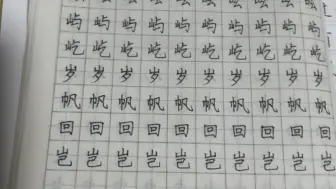 屿 屿 屿 屿 屿 屿 屿 屿 屿 屿
屹 屹 屹 屹 屹 屹 屹 屹 屹 屹
岁 岁 岁 岁 岁 岁 岁 岁 岁 岁
帆 帆 帆 帆 帆 帆 帆 帆 帆 帆
回 回 回 回 回 回 回 回 回 回
岂 岂 岂 岂 岂 岂 岂 岂 岂 岂